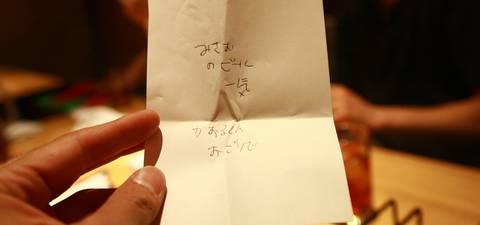 みさお
のビール
一気
かおるくん
おごりで